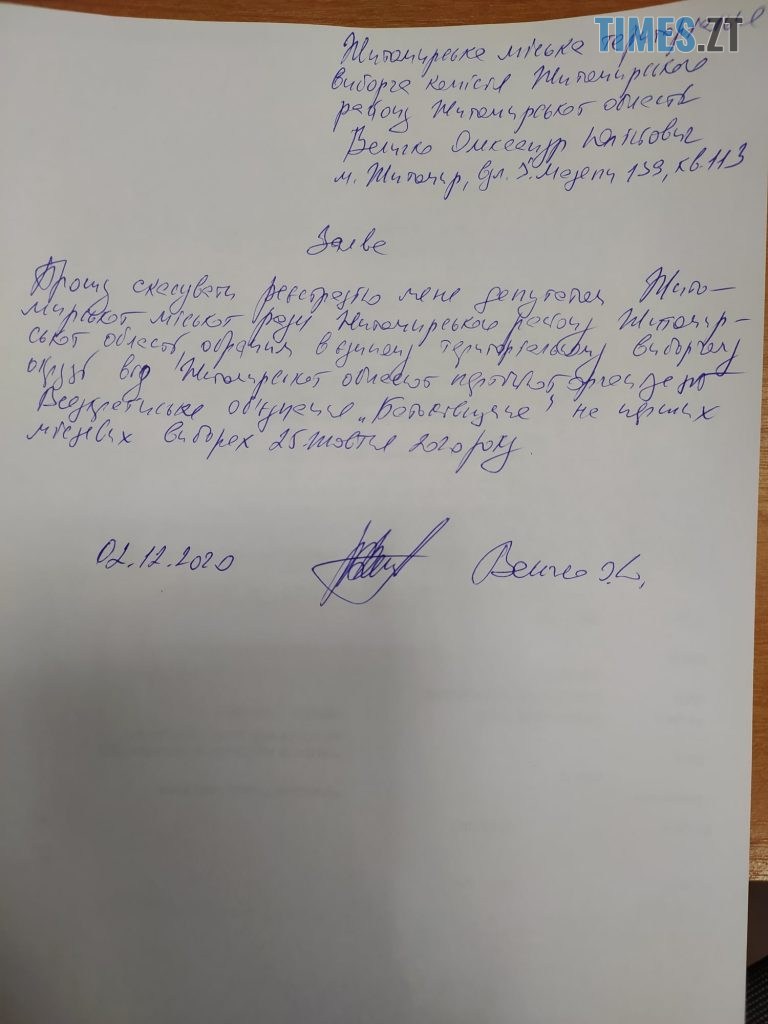 TIMES.ZT
Житомирська міська територіальна
виборча комісія Житомирського
району Житомирської області
Величко Олександр
м. Житомир, вул. І. Мазепи 139, кв. 113
Заява
Прошу скасувати реєстрацію мене депутатом Жито-
мирської міської ради Житомирського району Житомир-
ської області обраним в єдиному територіальному виборчому
окрузі від Житомирської обласної партійної організації
Всеукраїнське об'єднання „Батьківщина" на перших
місцевих виборах 25 жовтня 2020 року.
02.12.2020
Величко